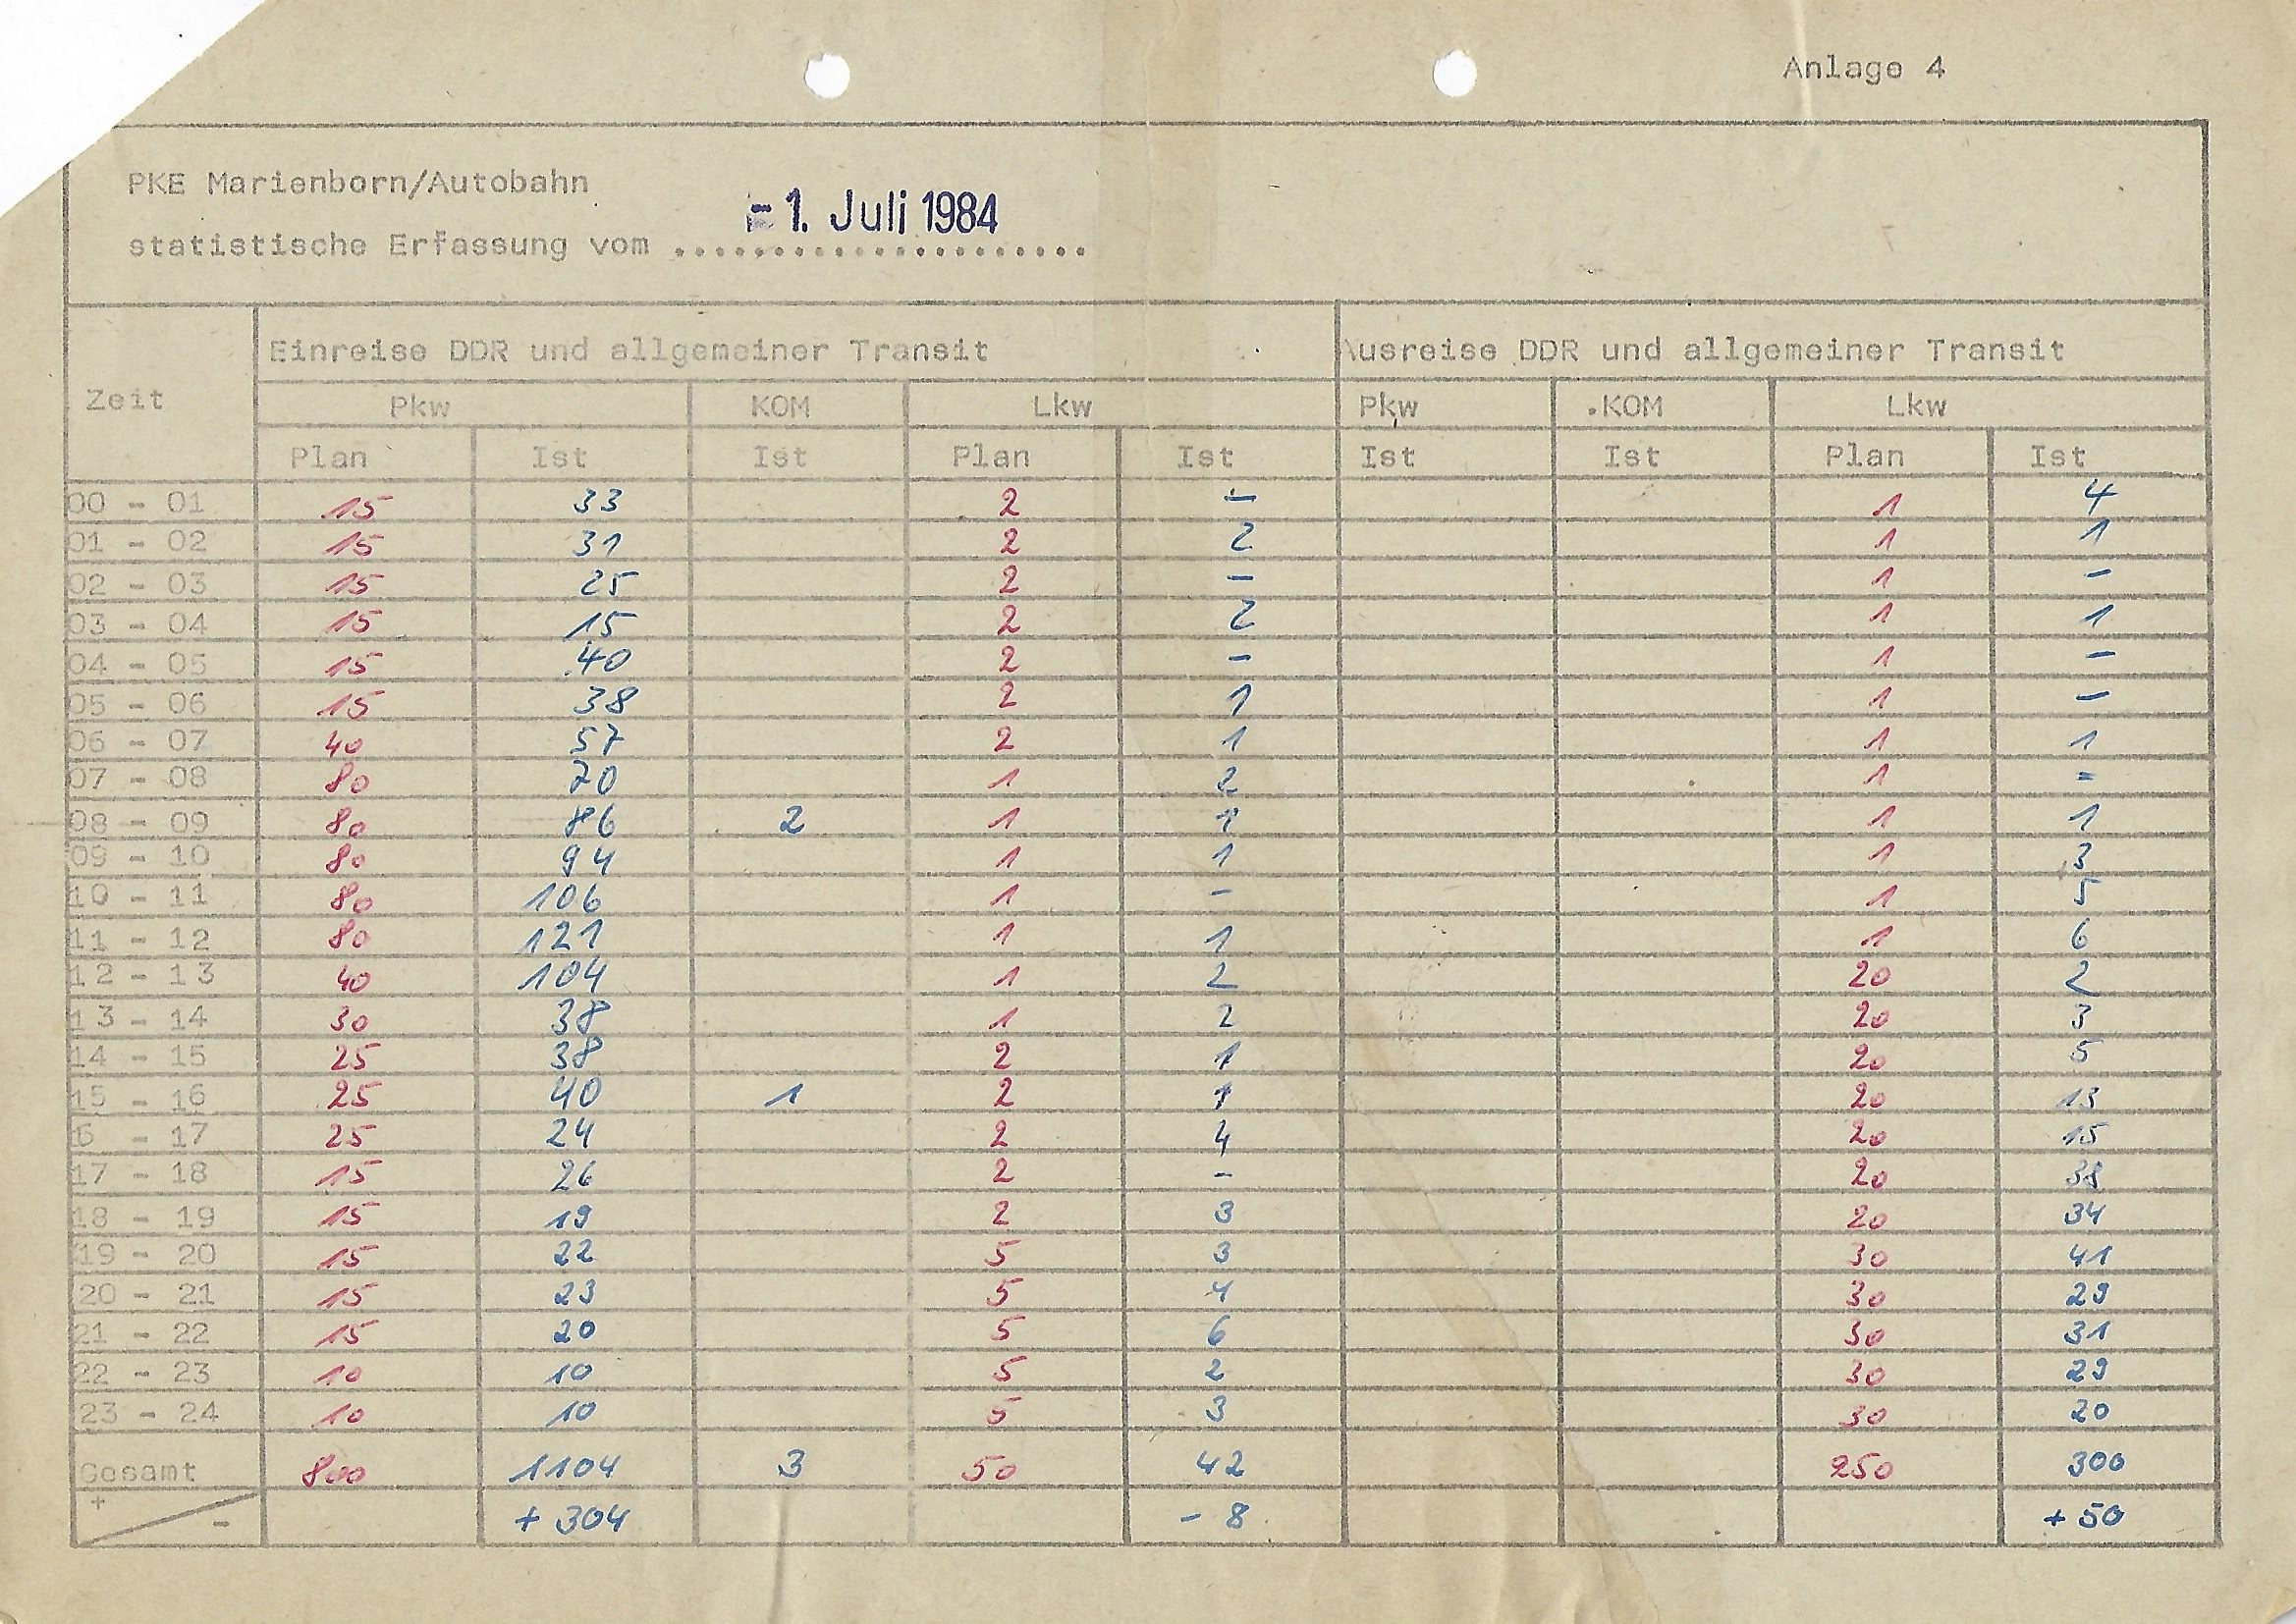 Anlage 4
PKE Marienborn/Autobahn
- 1. Juli 1984
statistische Erfassung vom .....................
Einreise DDR und allgemeiner Transit Ausreise DDR und allgemeiner Transit
Zeit
Pkw KOM Lkw Pkw .KOM Lkw
Plan Ist Ist Plan Ist Ist Ist Plan Ist
00 - 01 15 33 2 - 1 4
01 - 02 15 31 2 2 1 1
02 - 03 15 25 2 - 1 -
03 - 04 15 15 2 2 1 1
04 - 05 15 40 2 - 1 -
05 - 06 15 38 2 1 1 -
06 - 07 40 57 2 1 1 1
07 - 08 80 70 1 2 1 -
08 - 09 80 86 2 1 1 1 1
09 - 10 80 94 1 1 1 3
10 - 11 80 106 1 - 1 5
11 - 12 80 121 1 1 1 6
12 - 13 40 104 1 2 20 2
13 - 14 30 38 1 2 20 3
14 - 15 25 38 2 1 20 5
15 - 16 25 40 1 2 1 20 13
6 - 17 25 24 2 4 20 15
17 - 18 15 26 2 - 20 38
18 - 19 15 19 2 3 20 34
19 - 20 15 22 5 3 30 41
20 - 21 15 23 5 4 30 29
21 - 22 15 20 5 6 30 31
22 - 23 10 10 5 2 30 29
23 - 24 10 10 5 3 30 20
Gesamt 800 1104 3 50 42 250 300
+ - + 304 - 8 + 50